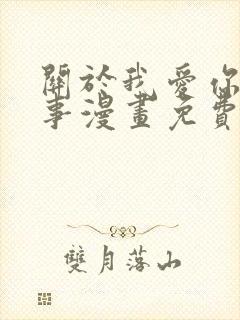 關於我愛你
事漫畫免費
雙月落山